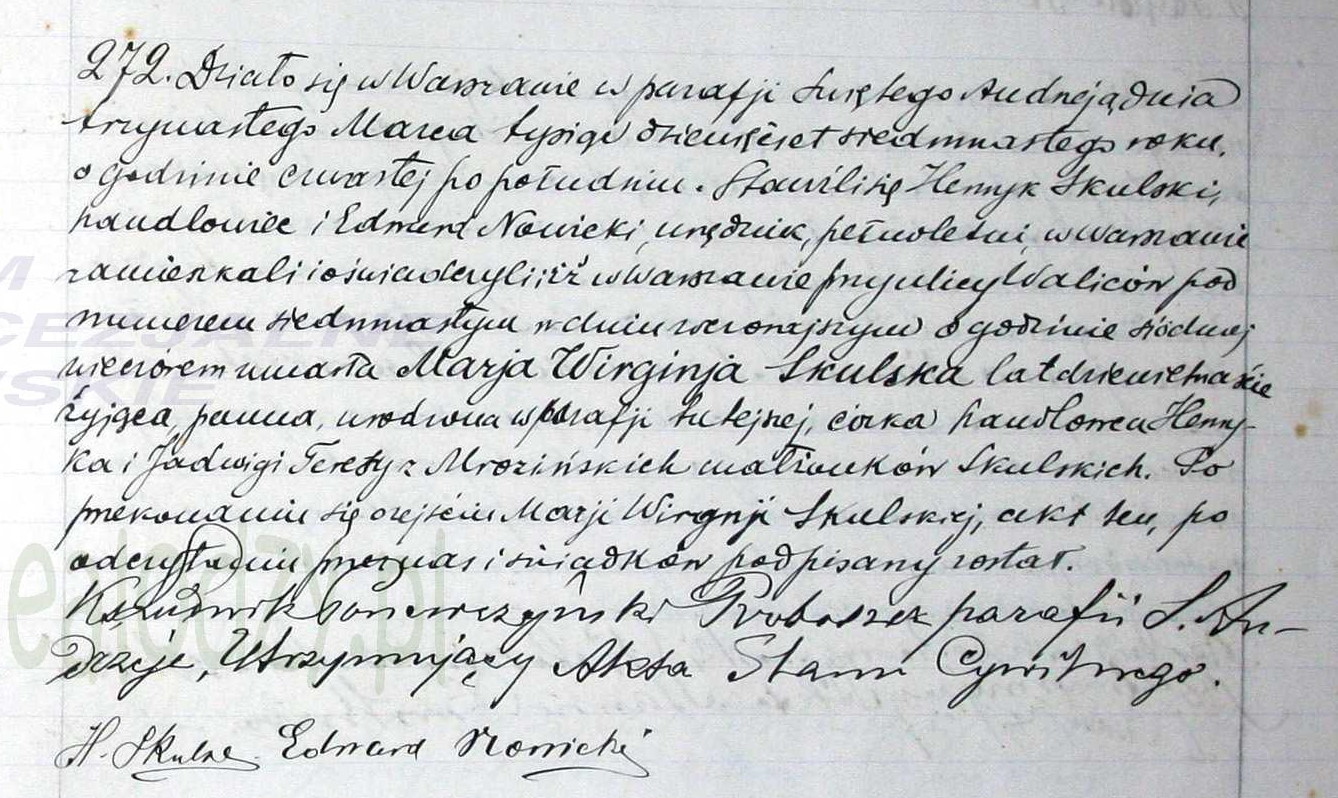 272. Działo się w Warszawie w parafji Świętego Andrzeja dnia
trzynastego Marca tysiąc dziewięćset siedmnastego roku,
o godzinie czwartej po południu. Stawili się Henryk Skulski,
handlowiec i Edward Nowicki, urzędnik, pełnoletni, w Warszawie
zamieszkali i oświadczyli, iż w Warszawie przy ulicy Waliców pod
numerem siedmnastym w dniu wczorajszym o godzinie siódmej
wieczorem umarła Marja Wirginja Skulska lat dziewietnaście
żyjąca, panna, urodzona w parafji tutejszej, córka handlowca Henry-
ka i Jadwigi Teresy z Mrozińskich małżonków Skulskich. Po
przekonaniu się o zejściu Marji Wirginji Skulskiej, akt ten, po
odczytaniu przez nas i świadków podpisany został.
Ks. Ludwik Proboszcz parafii S. An-
drzeja, Utrzymujący Akta Stanu Cywilnego.
H. Skulski Edward Nowicki
M
CEZJALNE
WSKIE
e-kodzy.pl